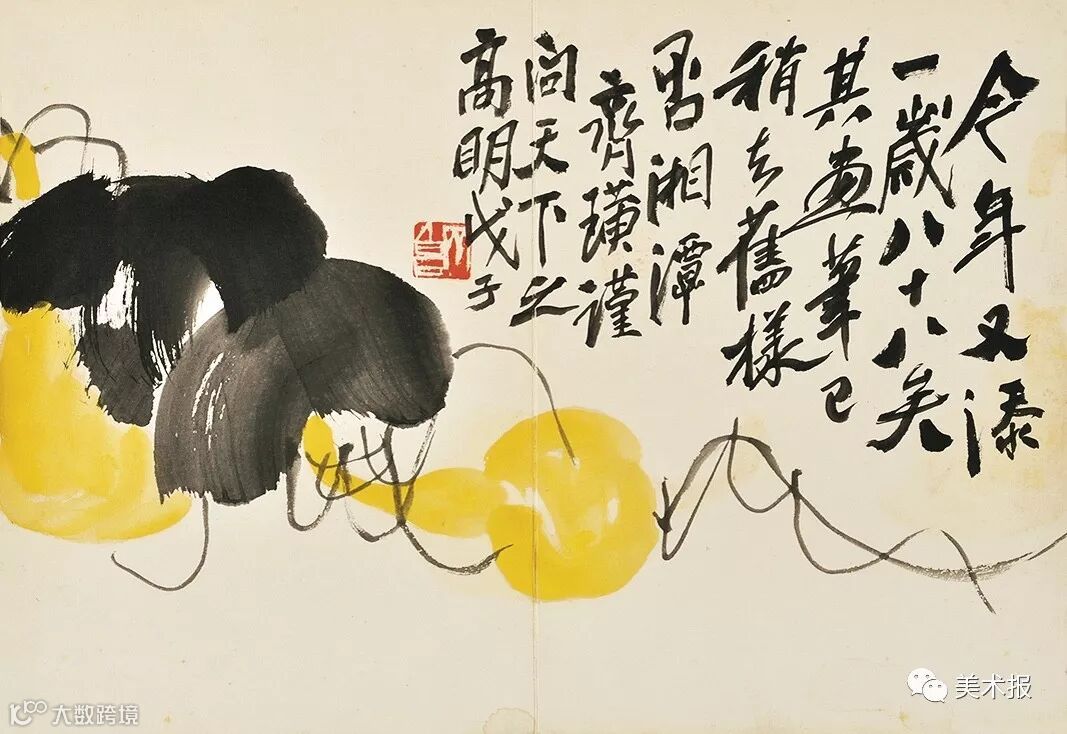 今年又添
一歲八十八矣
其畫筆已
稍去舊樣
湘潭
齊璜謹
問天下之
高明戊子
美术报
大数跨境